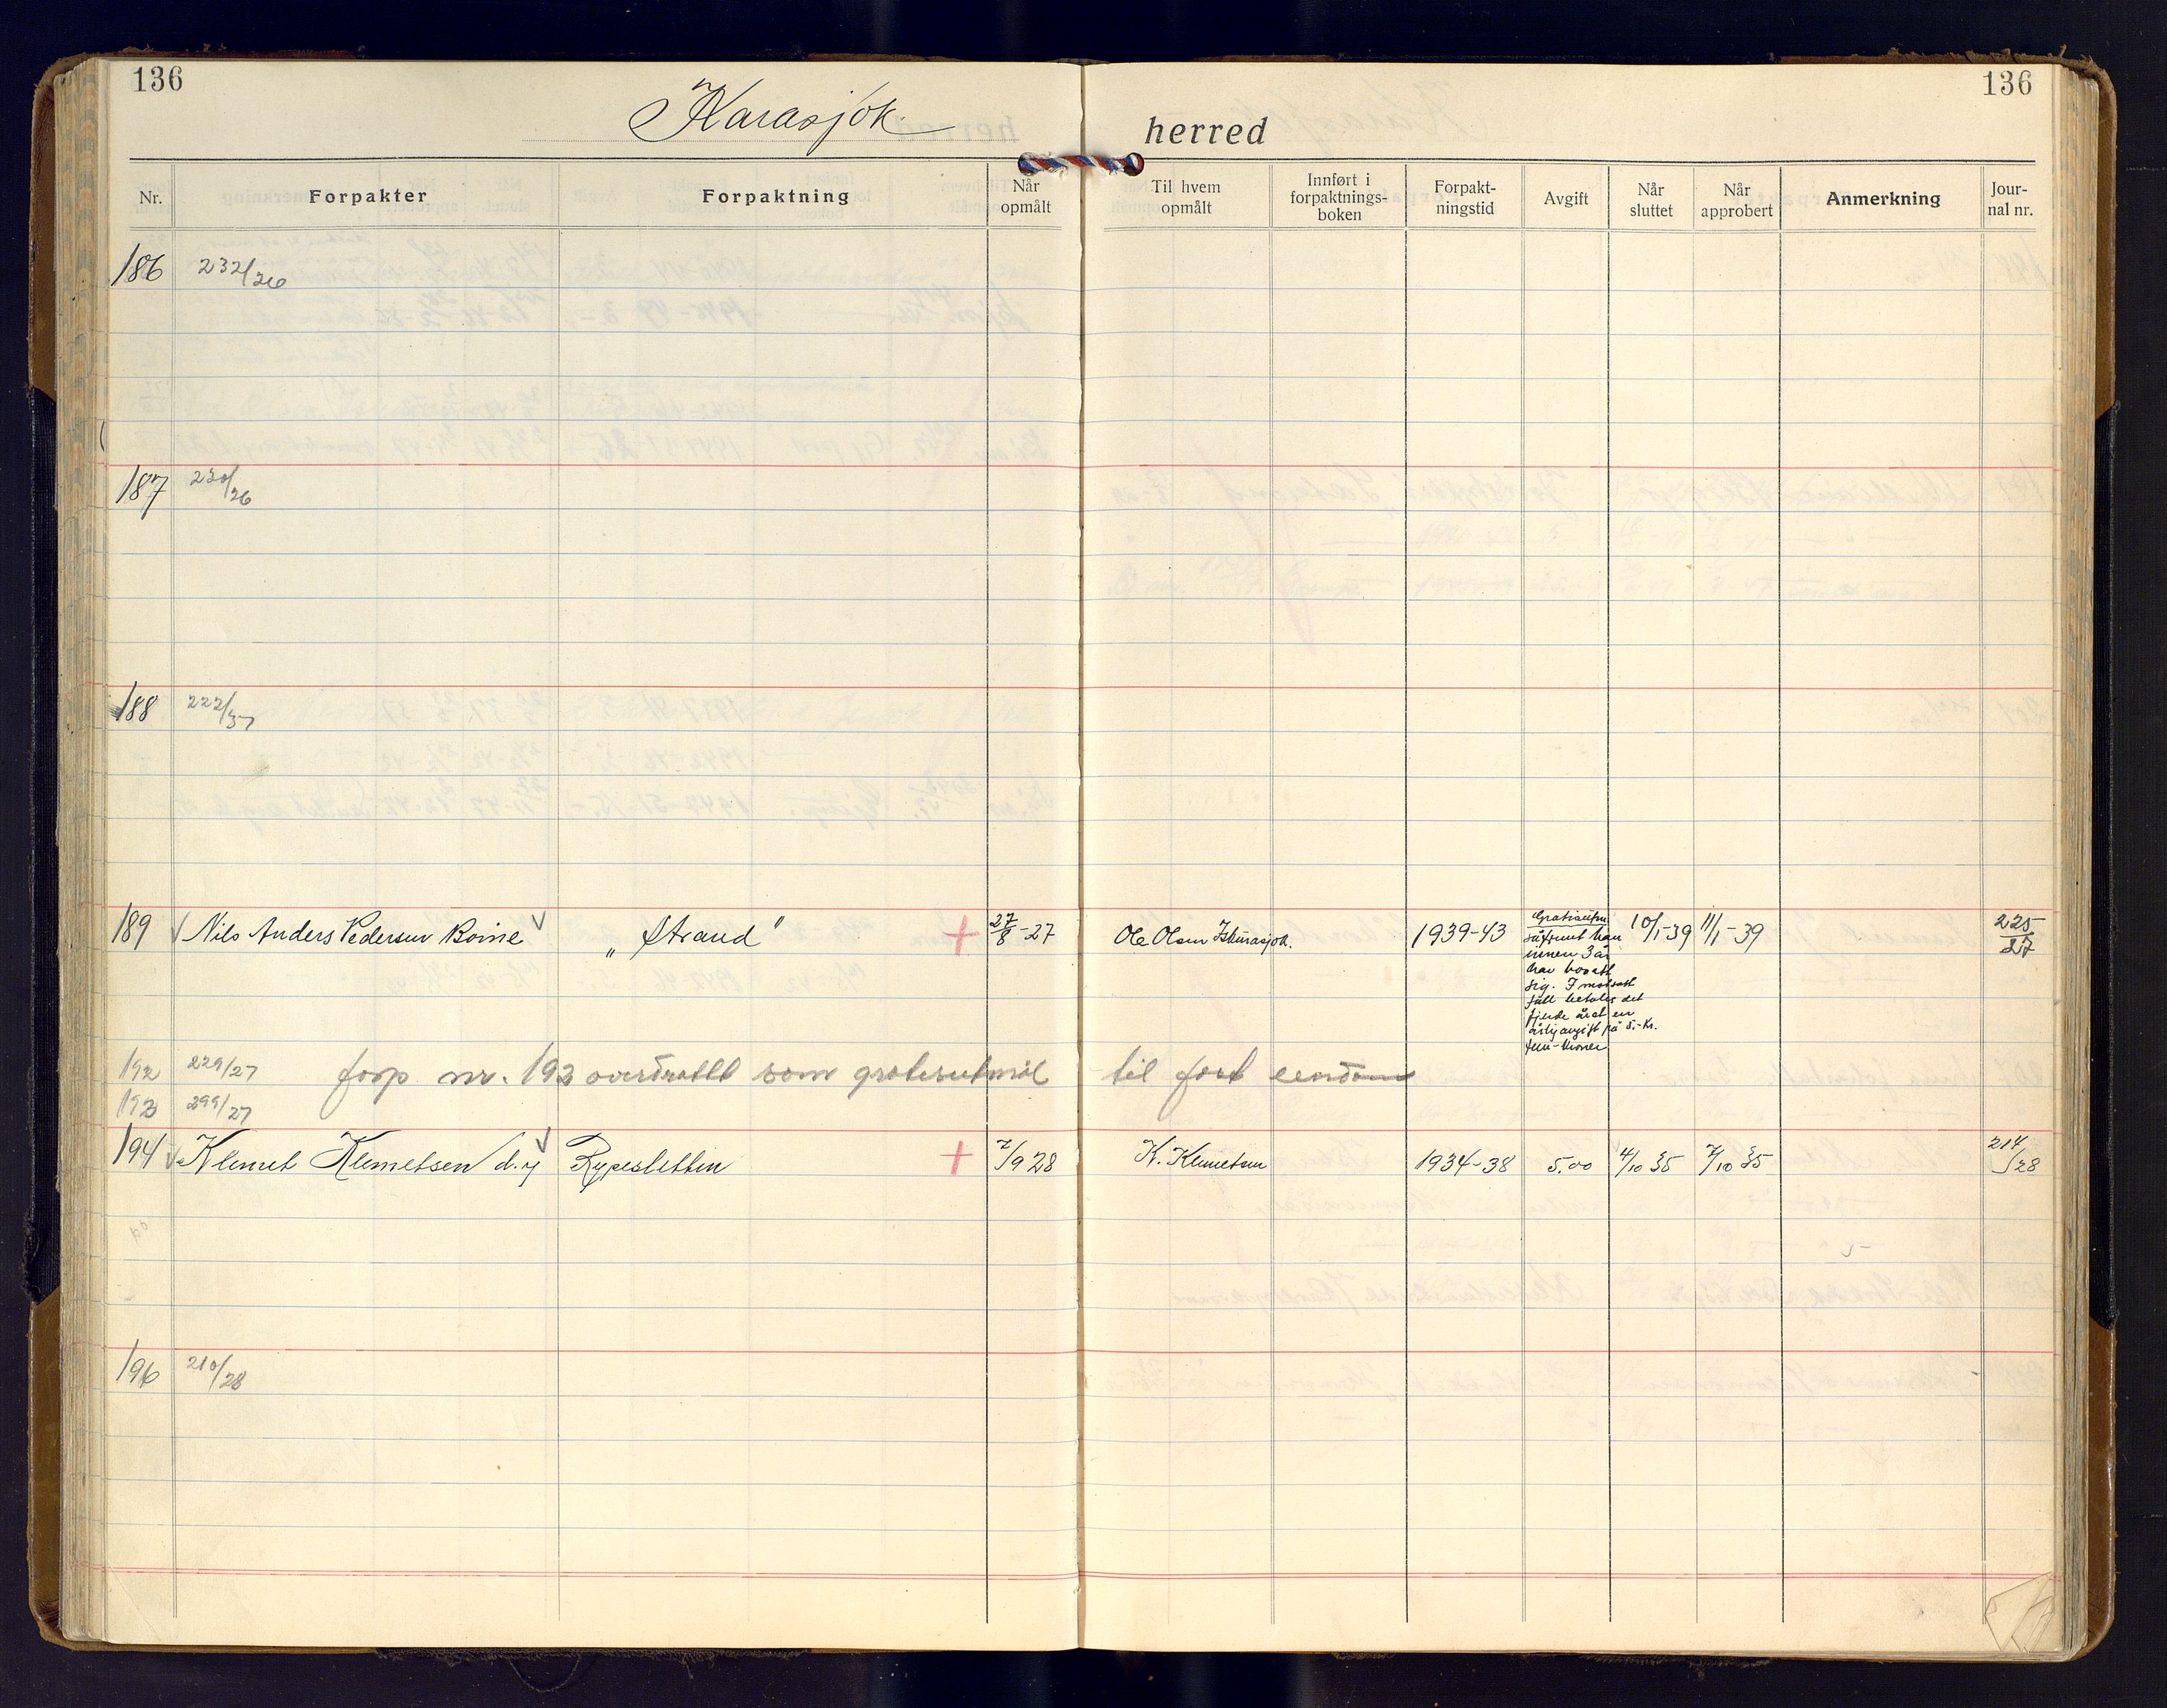 136
136
Karasjok herred
Nr. Forpakter Forpaktning Når opmålt Til hvem opmålt Innført i forpaktnings-boken Forpakt-ningstid Avgift Når sluttet Når approbert Anmerkning Jour-nal nr.
186 232/26
187 230/26
188 222/37
189 √ Nils Anders Pedersen Boine √ "Strand" + 27/8-27 Ole Olsen Iskurasjok. 1939-43 10/1-39 11/1-39 225/27
såfremt han
innen 3 år
har bosatt
sig. I motsatt
fall betales det
fjerde året en
årlig avgift på 5.-kr.
fem-kroner
192 229/27 forp nr. 193 overdratt som gratisutmål til fast eiendom
193 299/27
194 √ Klemet Klemetsen d.y √ Rypesletten + 7/9 28 K. Klemetsen 1934-38 5.00 4/10 35 7/10 35 214/28
196 210/28